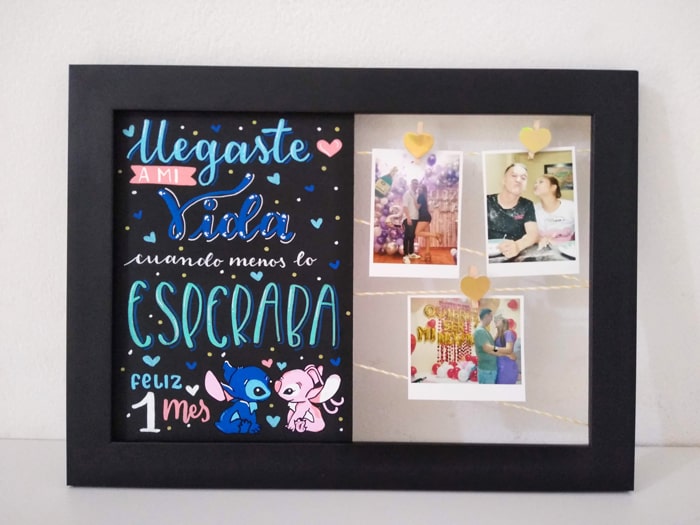 llegaste
A MI
Vida
cuando menos lo
ESPERABA
FELIZ
1 mes